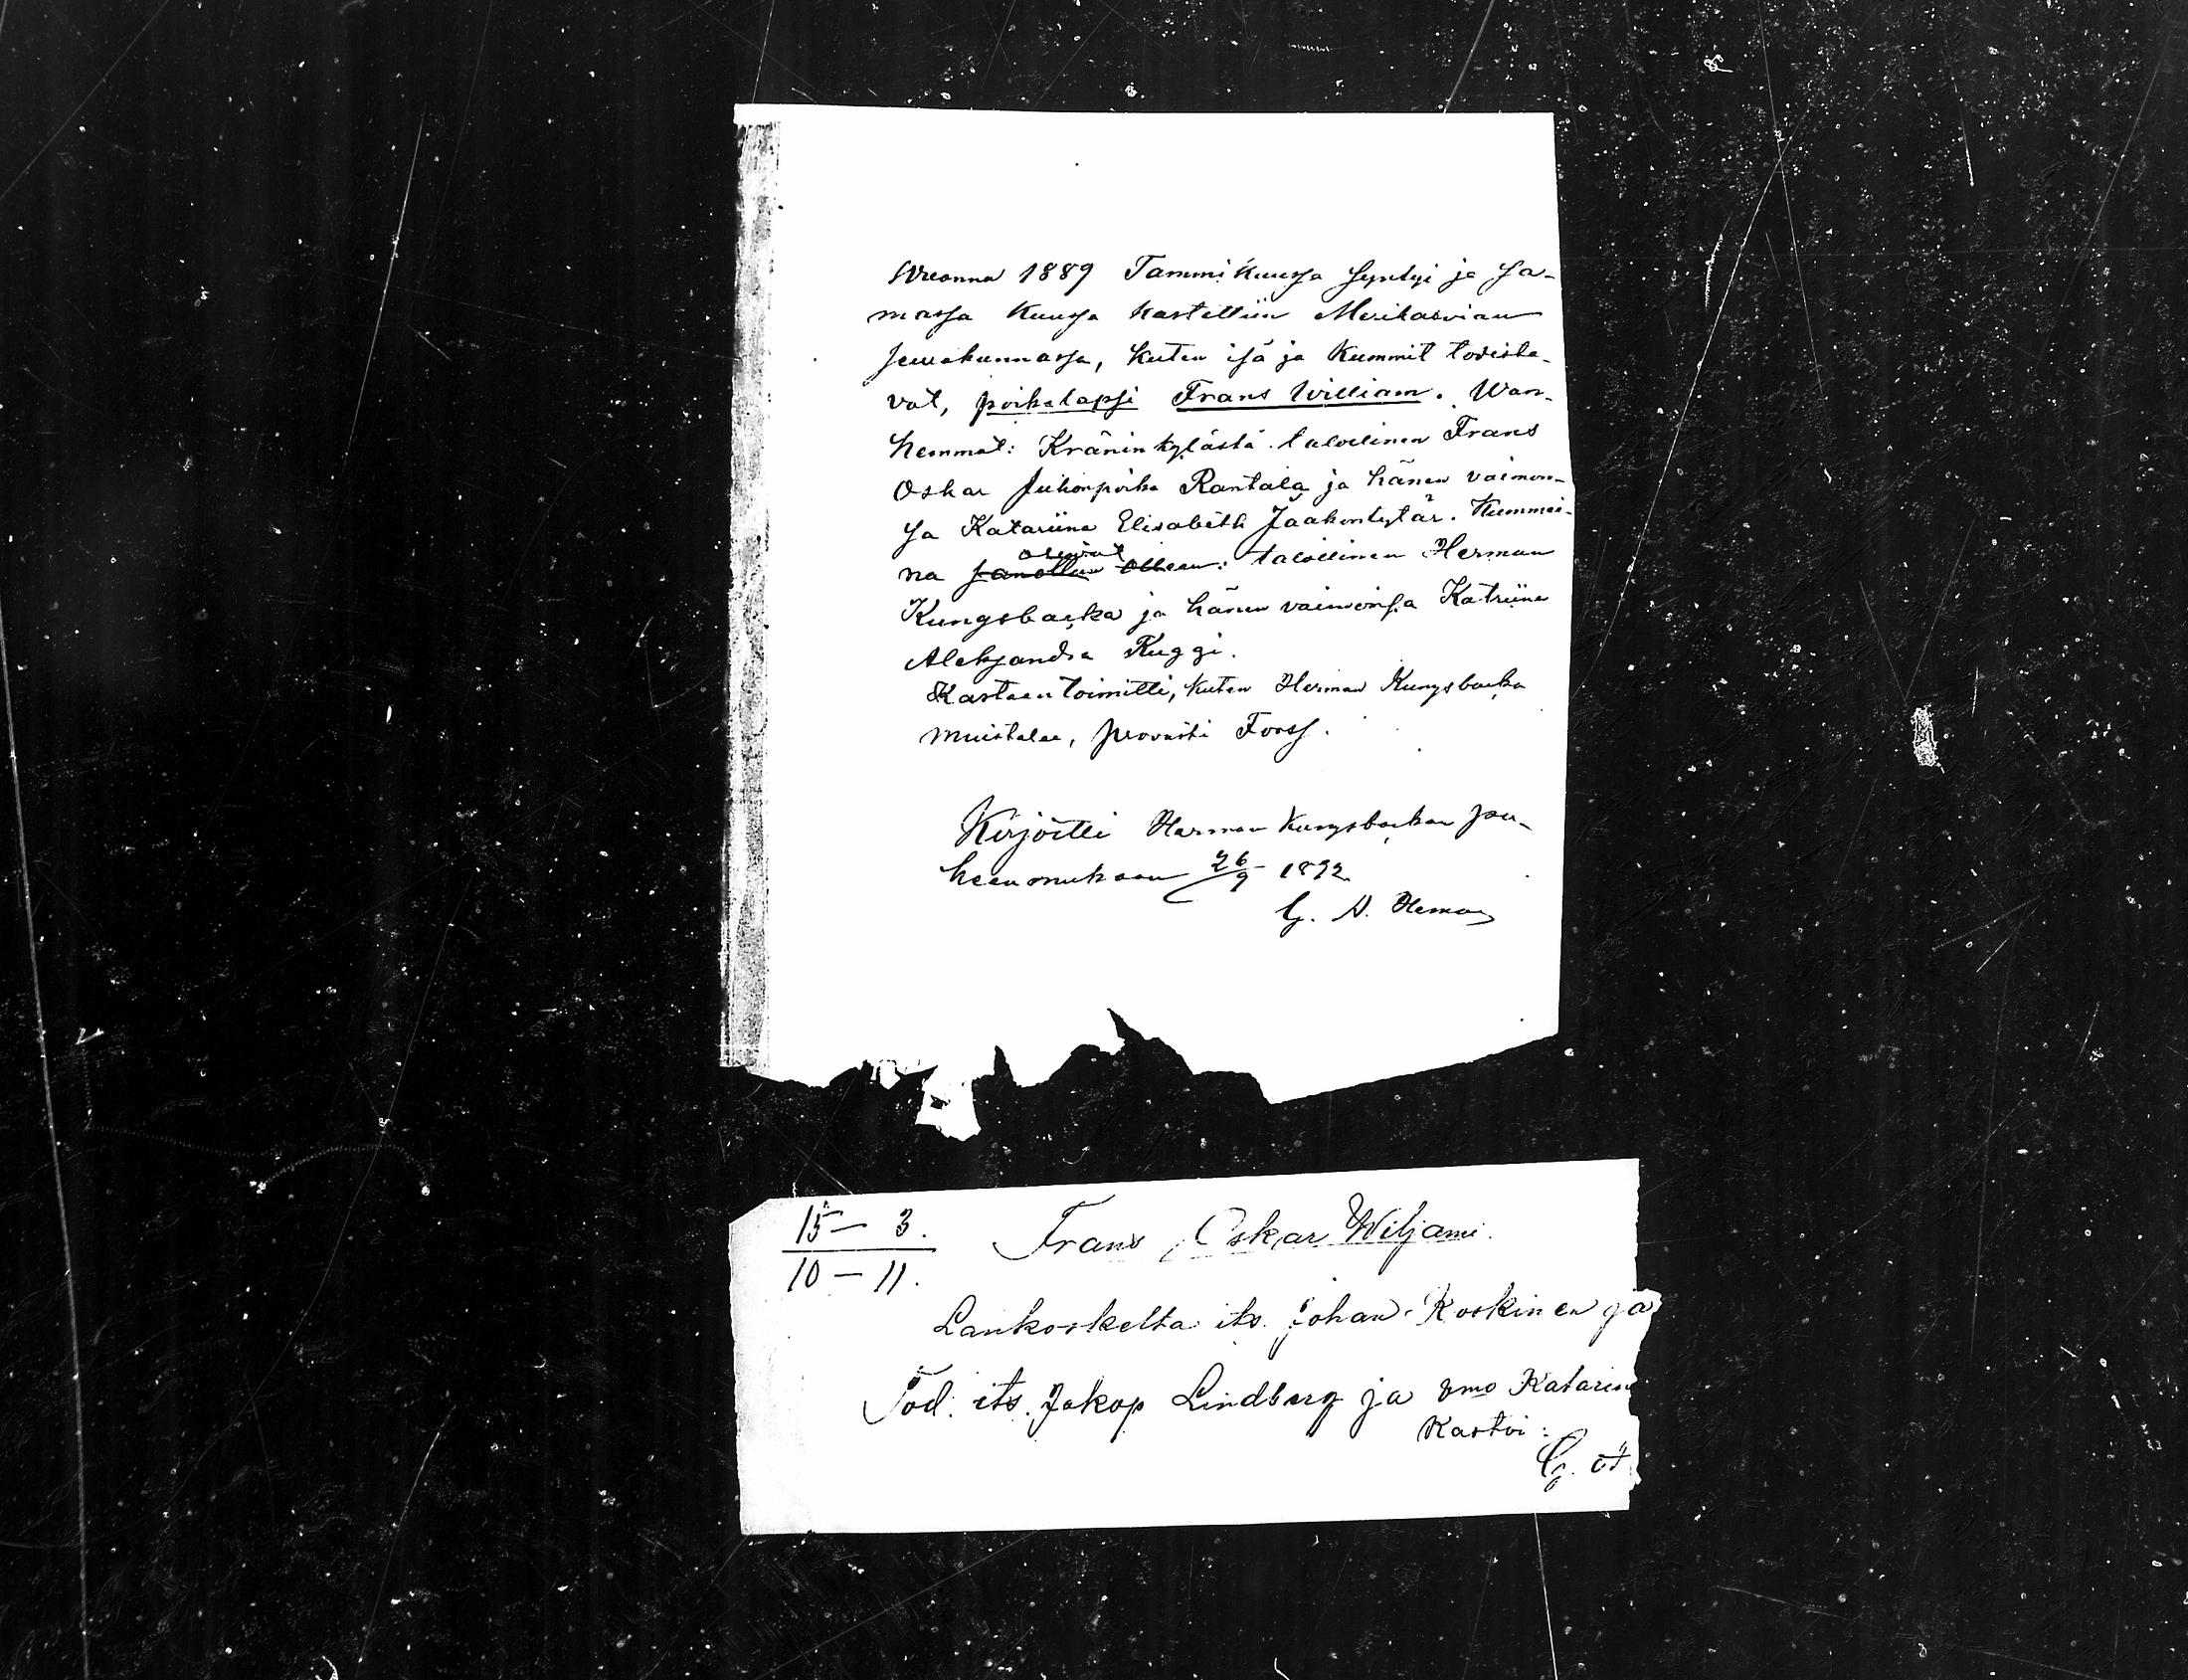 Wuonna 1889 Tammikuussa syntyi ja sa-
massa kuussa kastettiin Merikarvian
seurakunnassa, kuten isä ja kummit todista-
vat, poikalapsi Frans William. Wan-
hemmat: Kränin kylästä talollinen Frans
Oskar Juhonpoika Rantala ja hänen vaimon-
sa Katariina Elisabeth Jaakontytär. Kummei-
na sanottiin olleen: olivat talollinen Herman
Kungsbacka ja hänen vaimonsa Katriina
Aleksandra Kuggi.
Kasteen toimitti, kuten Herman Kungsbacka
muistelee, provasti Forss.
Kirjoitti Herman Kungsbackan pu-
heen mukaan 26/9 1892
G. A. Heman
15 – 3.
10 – 11.
Frans Oskar Wiljami.
Lankoskelta its. Johan Koskinen ja
Tod. its. Jakop Lindberg ja vmo Katarin
Kastoi:
G.